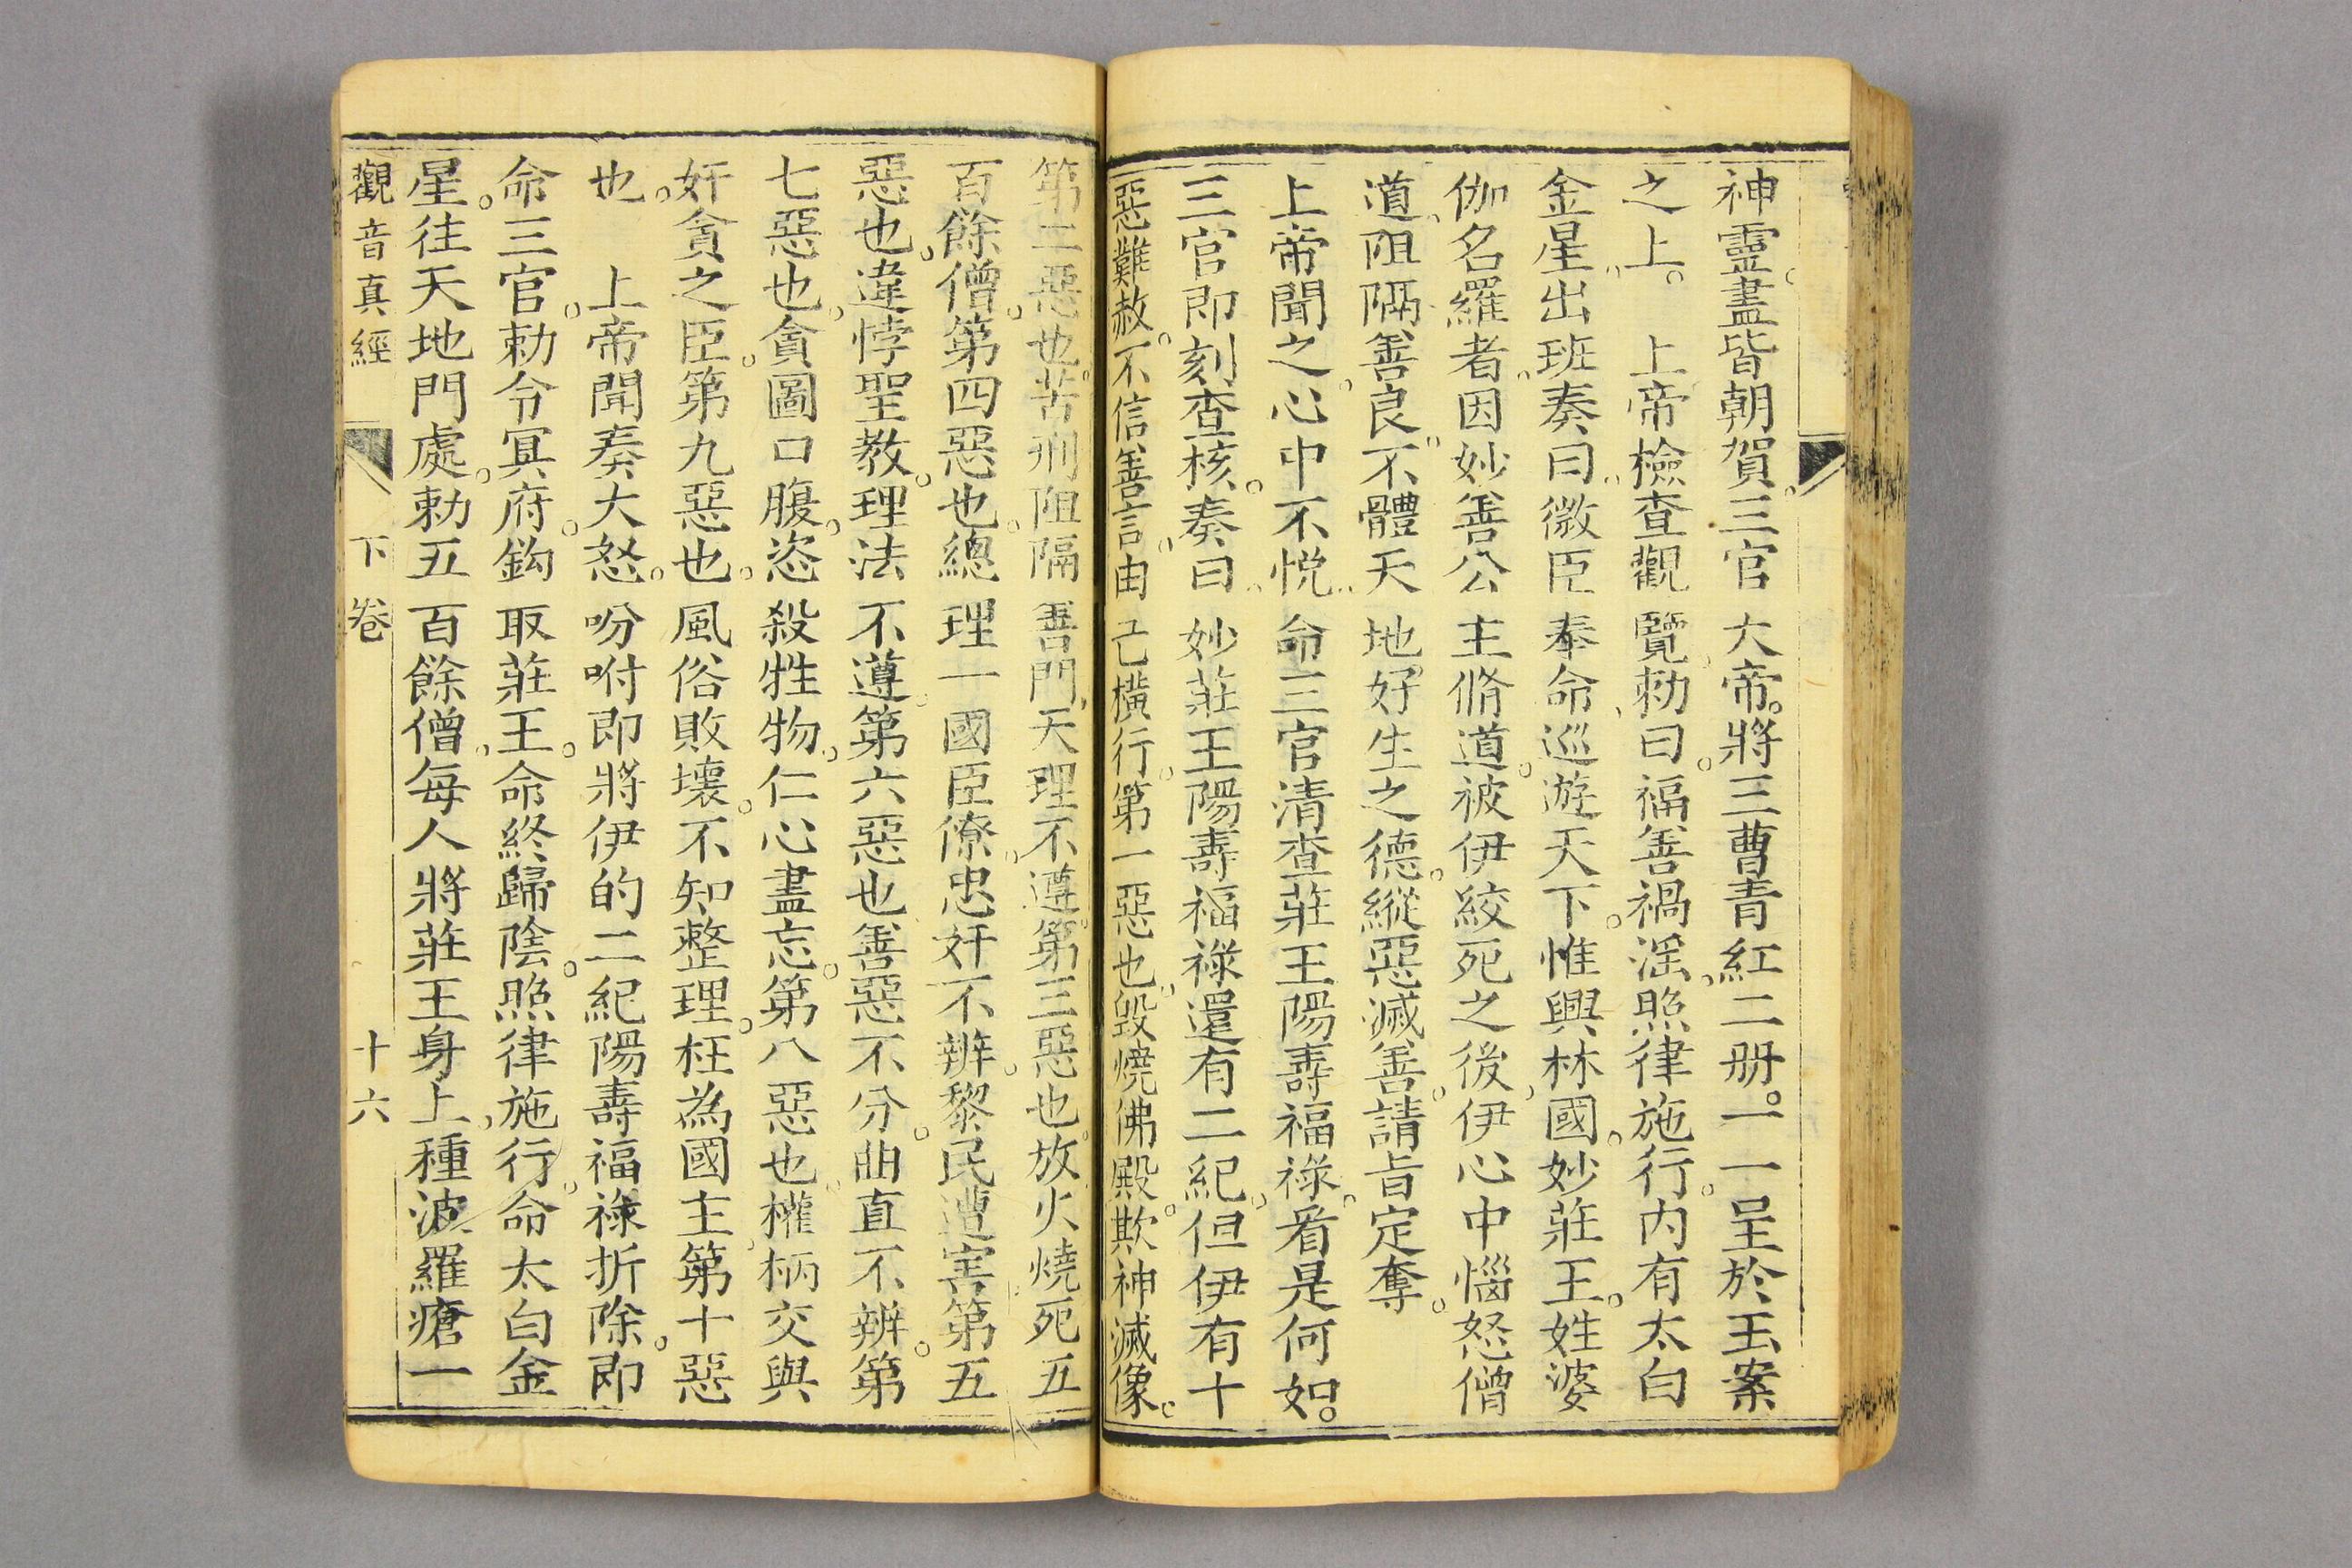 神靈盡皆朝賀。三官大帝。將三曹青紅二册。一一呈於玉案
之上。　上帝檢查觀覽。勅曰。福善禍淫。照律施行。内有太白
金星。出班奏曰。微臣奉命巡遊天下。惟興林國。妙莊王。姓婆
伽名羅者。因妙善公主脩道。被伊絞死之後。伊心中惱怒僧
道。阻隔善良。不體天地好生之德。縱惡滅善。請旨定奪。
上帝聞之。心中不悦。命三官清查莊王陽壽福祿。看是何如。
三官即刻查核。奏曰。妙莊王陽壽福祿還有二紀。但伊有十
惡難赦。不信善言。由己橫行。第一惡也。毀燒佛殿。欺神滅像。
第二惡也。苦刑阻隔善門。天理不遵。第三惡也。放火燒死五
百餘僧。第四惡也。總理一國臣僚。忠奸不辨。黎民遭害。第五
惡也。違悖聖教。理法不遵。第六惡也。善惡不分。曲直不辨。第
七惡也。貪圖口腹。恣殺牲物。仁心盡忘。第八惡也。權柄交與
奸貪之臣。第九惡也。風俗敗壞。不知整理。枉為國主。第十惡
也。　上帝聞奏大怒。吩咐即將伊的二紀陽壽福祿折除。即
命三官。勅令冥府。鈎取莊王。命終歸陰。照律施行。命太白金
星。往天地門處。勅五百餘僧。每人將莊王身上。種波羅瘡一
觀音真經　下卷　十六